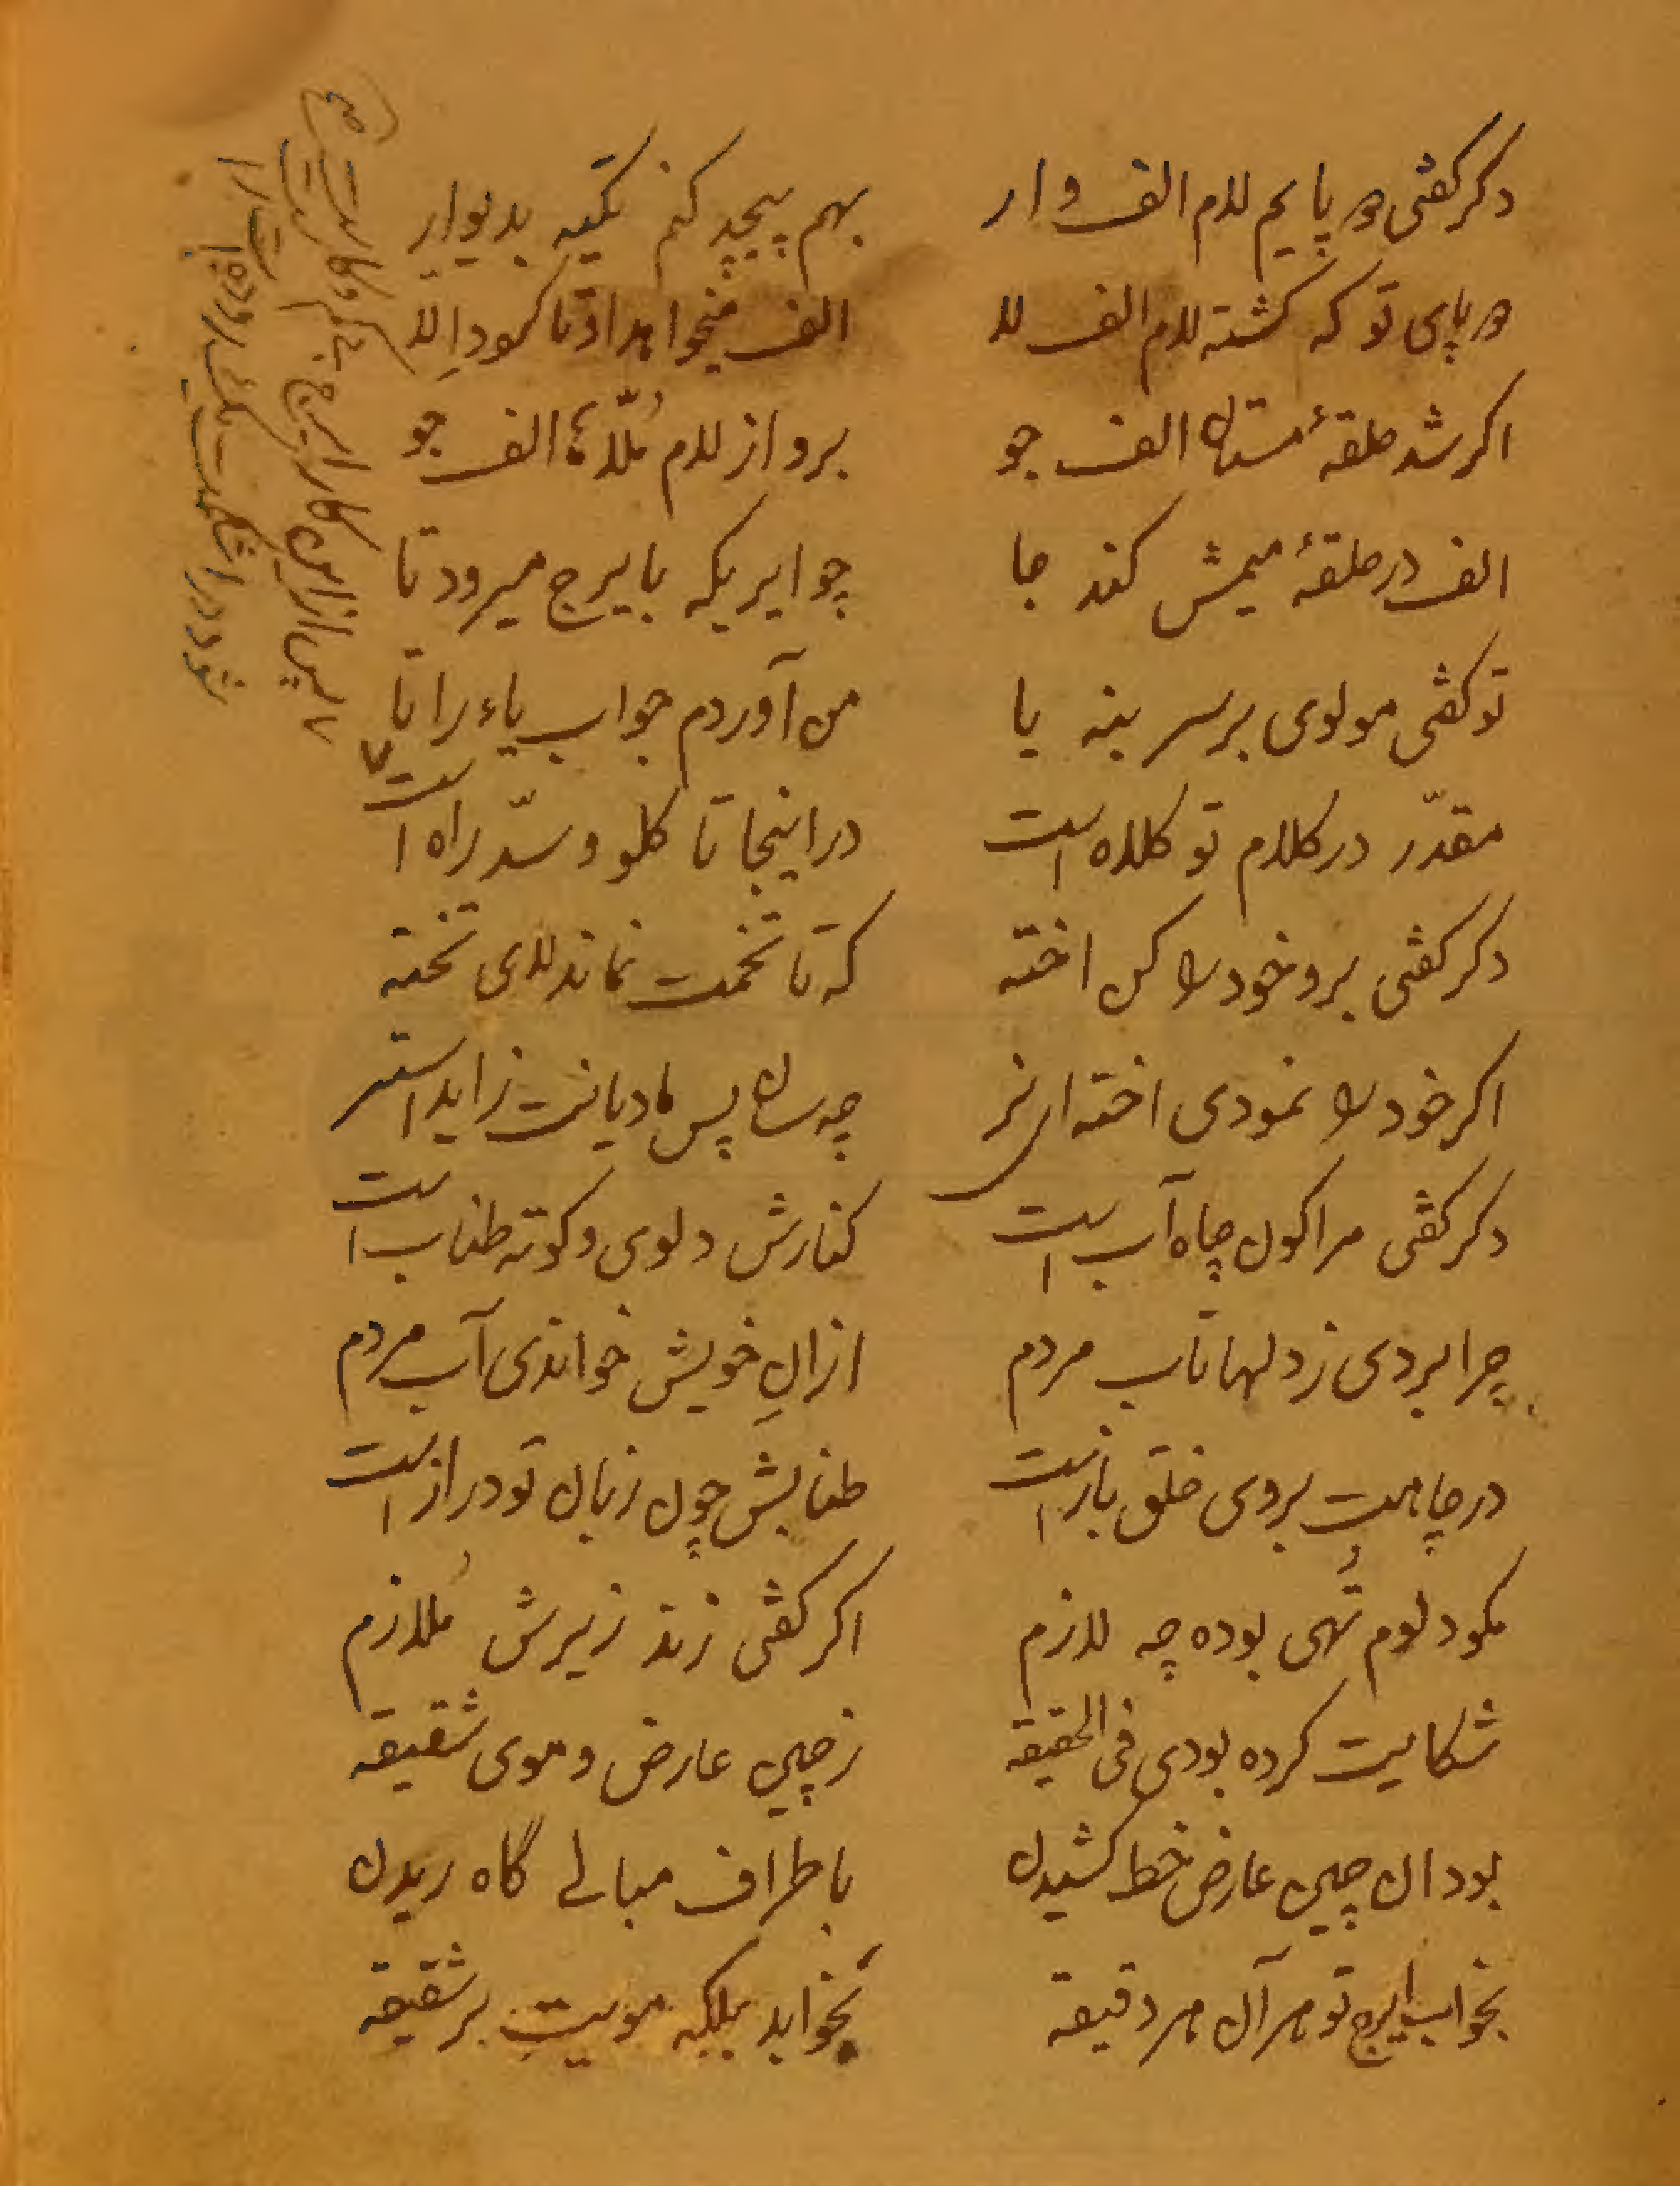 دکر کفتی دو پایم لام الف وار    بهم پیچد کنم تکیه بدیوار
دو پای تو که کشته لام الف لا    الف میخواهد او تا کمود الا
اکر شد حلقهٔ مستان الف جو    برو از لام مُلّا الف جو
الف در حلقهٔ میمش کند جا    چو ایریکه بایرج میرود تا
تو کفتی مولوی بر سر بنه یا    من آوردم جواب یاء را تا
مقدّر در کلام تو کلاه است    در اینجا تا کلو و سدّ راه است
دکر کفتی برو خود را کن اخته    که تا تخمت نماند لای تخته
اکر خود را نمودی اخته ای نر    چه سان پس مادیانت زاید استر
دکر کفتی مرا کون چاه آب است    کنارش دلوی و کوته طناب است
چرا بردی ز دلها تاب مردم    ازانِ خویش خواندی آب مردم
در چاهت بروی خلق باز است    طنابش چون زبان تو دراز است
مکو دلوم تُهی بوده چه لازم    اکر کفتی زند زیرش مُلازم
شکایت کرده بودی فی الحقیقه    ز چین عارض و موی شقیقه
بود ان چین عارض خط کشیدن    باطراف مبالی گاه ریدن
بخواب ایرج تو هر آن هر دقیقه    نخوابد بلکه مویت بر شقیقه